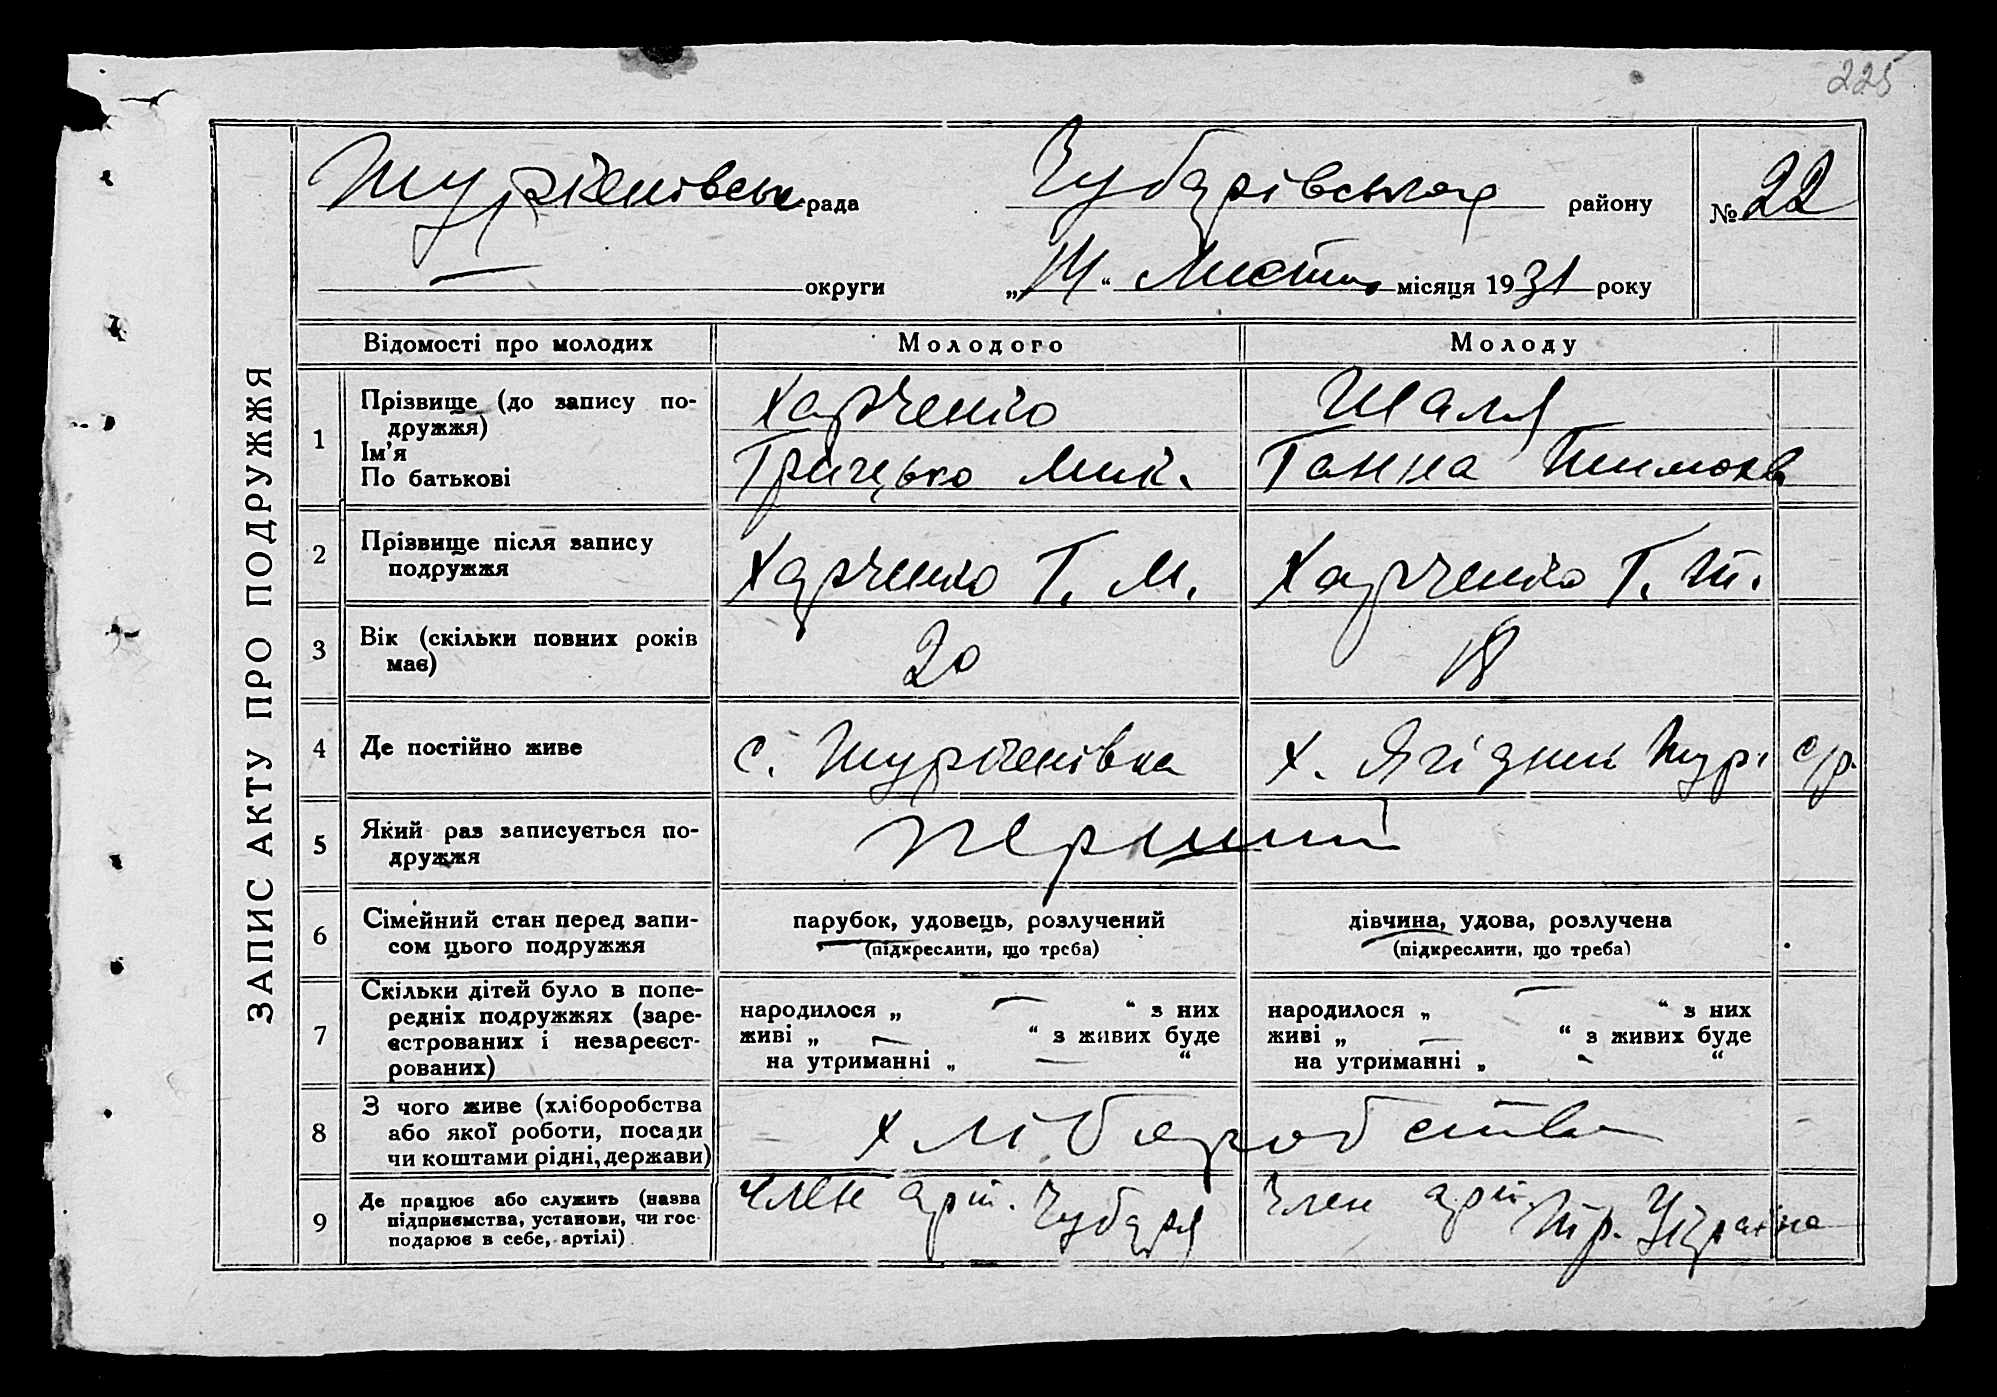 225
ЗАПИС АКТУ ПРО ПОДРУЖЖЯ
Туркенівська рада Чубарівського району № 22
округи „14“ Листоп. місяця 1931 року
Відомості про молодих Молодого Молоду
1 Прізвище (до запису по-
дружжя)
Ім'я
По батькові
Харченко
Грицько Мик.
Шаля
Ганна Тимохв.
2 Прізвище після запису
подружжя
Харченко Г. М.
Харченко Г. Т.
3 Вік (скільки повних років
має)
20
18
4 Де постійно живе
с. Туркенівка
х. Ягідний Тур. с/р.
5 Який раз записується по-
дружжя
перший
6 Сімейний стан перед запи-
сом цього подружжя
парубок, удовець, розлучений
(підкреслити, що треба)
дівчина, удова, розлучена
(підкреслити, що треба)
7 Скільки дітей було в попе-
редніх подружжях (заре-
єстрованих і незареєст-
рованих)
народилося „ — “ з них
живі „ — “ з живих буде
на утриманні „ — “
народилося „ — “ з них
живі „ — “ з живих буде
на утриманні „ — “
8 З чого живе (хліборобства
або якої роботи, посади
чи коштами рідні, держави)
хліборобства
9 Де працює або служить (назва
підприємства, установи, чи гос-
подарює в себе, артілі)
член арт. Чубаря
Член арт.
Тр. Україна